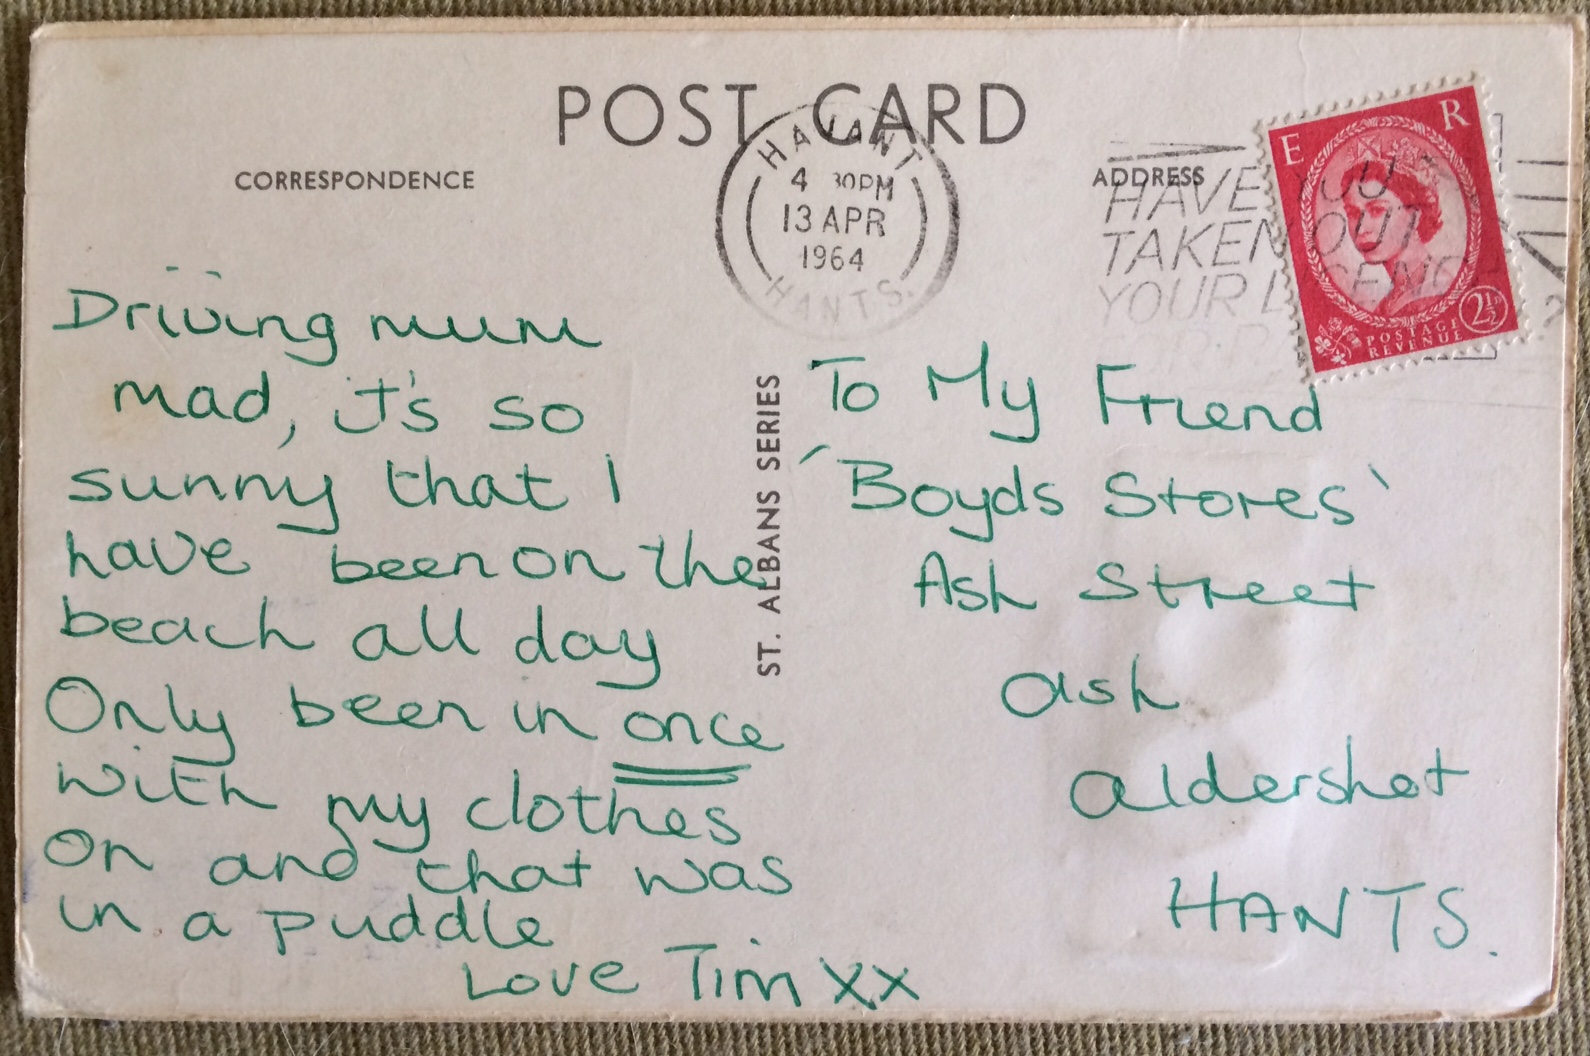 POST CARD
CORRESPONDENCE
ADDRESS
HAVANT
4 30PM
13 APR
1964
HANTS.
HAVE YOU
TAKEN OUT
YOUR LICENCE
E R
2½D
POSTAGE
REVENUE
Driving mum
mad, it's so
sunny that I
have been on the
beach all day
Only been in once
with my clothes
on and that was
in a puddle
Love Tim xx
ST. ALBANS SERIES
To My Friend
'Boyds Stores'
Ash Street
ash
aldershot
HANTS.